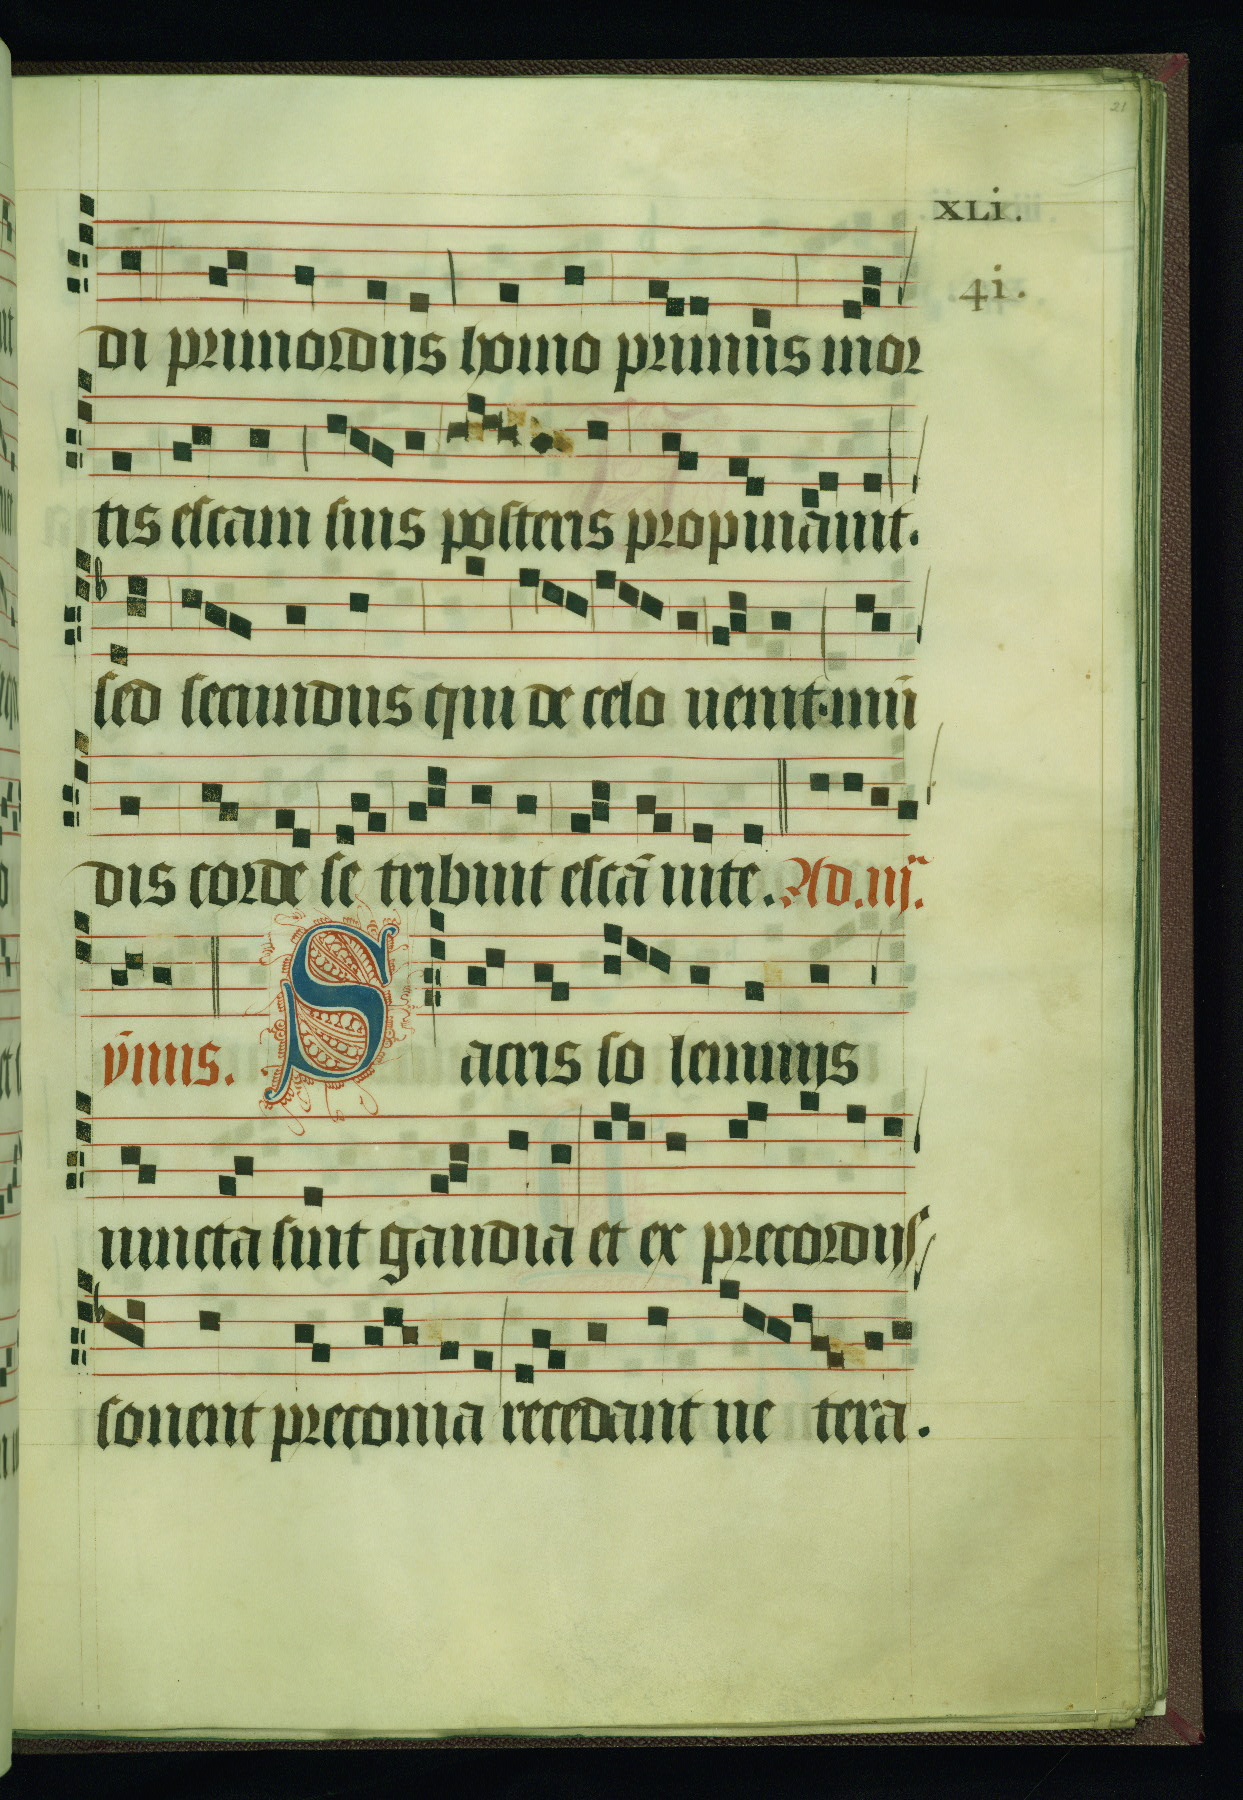 21
XLI.
di primordiis homo primus mor
41.
tis escam suis posteris propinauit.
sed secundus qui de celo uenit. mū
dis corde se tribuit escā uite. Ad. iij.
ẏmnus. Sacris solemnijs
iuncta sint gaudia et ex precordijs
sonent preconia recedant uetera.